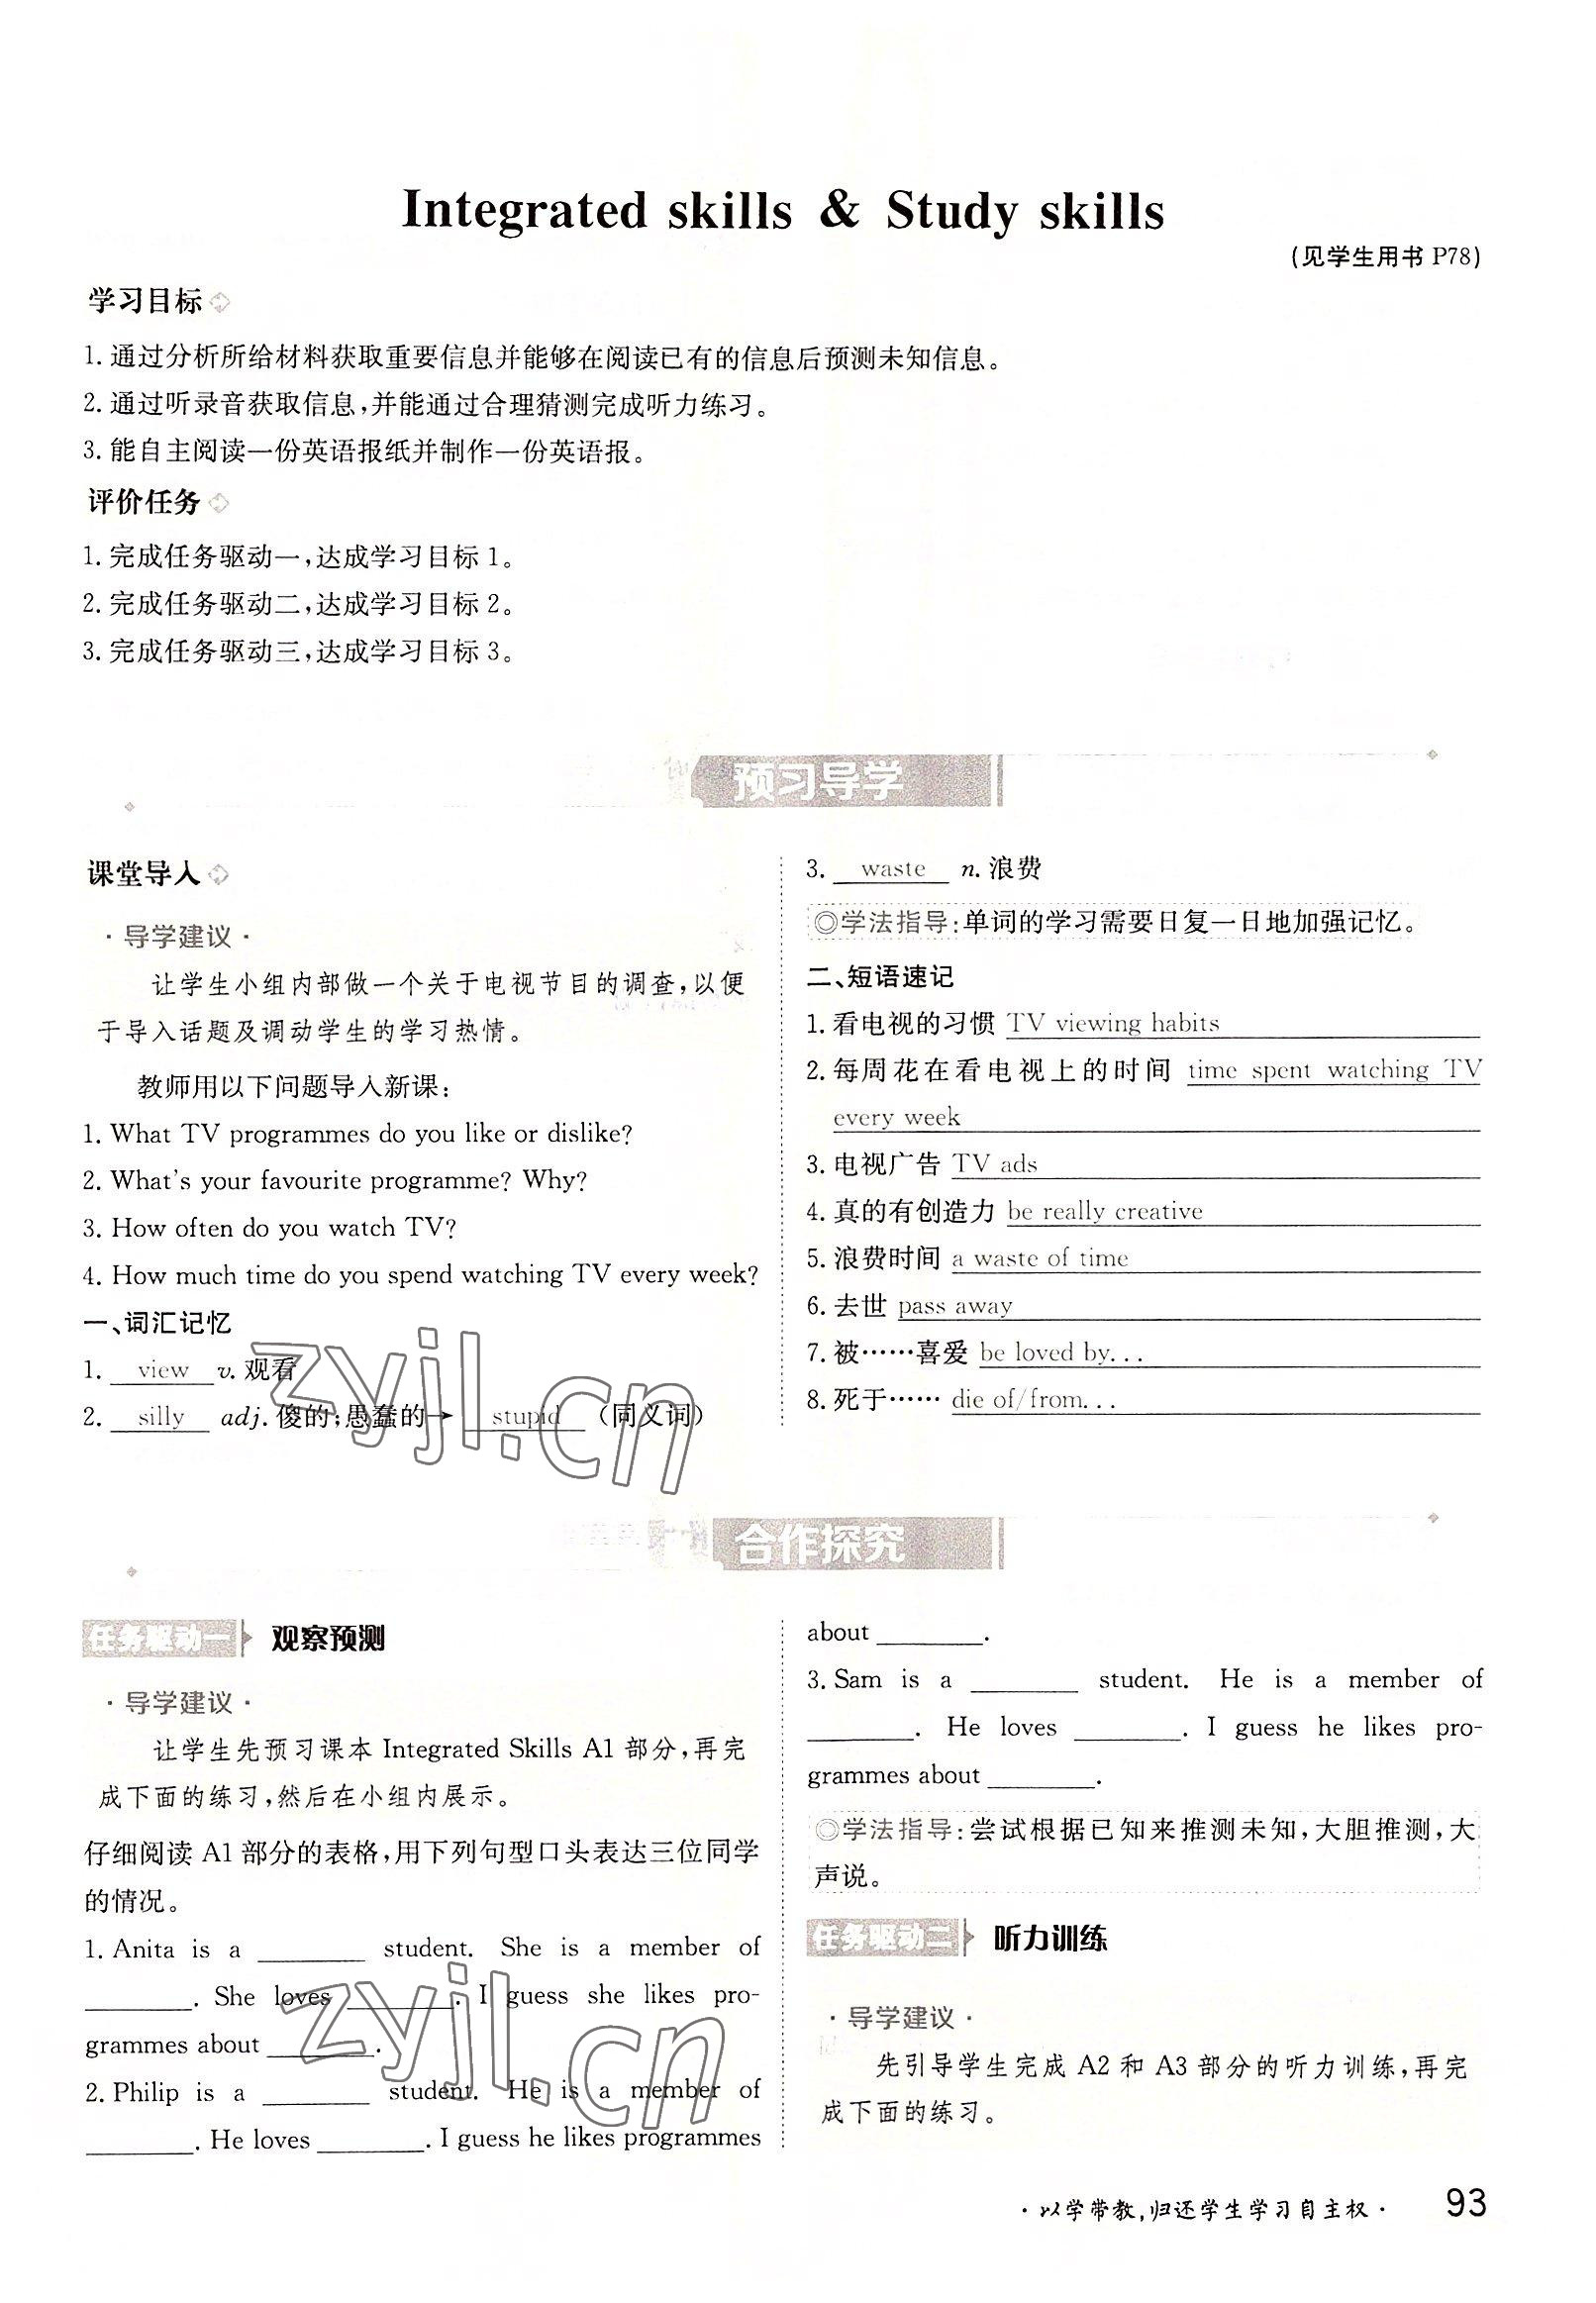 Integrated skills & Study skills
(见学生用书 P78)
学习目标
1. 通过分析所给材料获取重要信息并能够在阅读已有的信息后预测未知信息。
2. 通过听录音获取信息,并能通过合理猜测完成听力练习。
3. 能自主阅读一份英语报纸并制作一份英语报。
评价任务
1. 完成任务驱动一,达成学习目标 1。
2. 完成任务驱动二,达成学习目标 2。
3. 完成任务驱动三,达成学习目标 3。
预习导学
课堂导入
· 导学建议 ·
让学生小组内部做一个关于电视节目的调查,以便
于导入话题及调动学生的学习热情。
教师用以下问题导入新课:
1. What TV programmes do you like or dislike?
2. What's your favourite programme? Why?
3. How often do you watch TV?
4. How much time do you spend watching TV every week?
一、词汇记忆
1. view v. 观看
2. silly adj. 傻的;愚蠢的→ stupid (同义词)
3. waste n. 浪费
◎学法指导:单词的学习需要日复一日地加强记忆。
二、短语速记
1. 看电视的习惯 TV viewing habits
2. 每周花在看电视上的时间 time spent watching TV
every week
3. 电视广告 TV ads
4. 真的有创造力 be really creative
5. 浪费时间 a waste of time
6. 去世 pass away
7. 被……喜爱 be loved by...
8. 死于…… die of/from...
合作探究
任务驱动一 观察预测
· 导学建议 ·
让学生先预习课本 Integrated Skills A1 部分,再完
成下面的练习,然后在小组内展示。
仔细阅读 A1 部分的表格,用下列句型口头表达三位同学
的情况。
1. Anita is a ________ student. She is a member of
________. She loves ________. I guess she likes pro-
grammes about ________.
2. Philip is a ________ student. He is a member of
________. He loves ________. I guess he likes programmes
about ________.
3. Sam is a ________ student. He is a member of
________. He loves ________. I guess he likes pro-
grammes about ________.
◎学法指导:尝试根据已知来推测未知,大胆推测,大
声说。
任务驱动二 听力训练
· 导学建议 ·
先引导学生完成 A2 和 A3 部分的听力训练,再完
成下面的练习。
· 以学带教,归还学生学习自主权 · 93
zyjl.cn
zyjl.cn